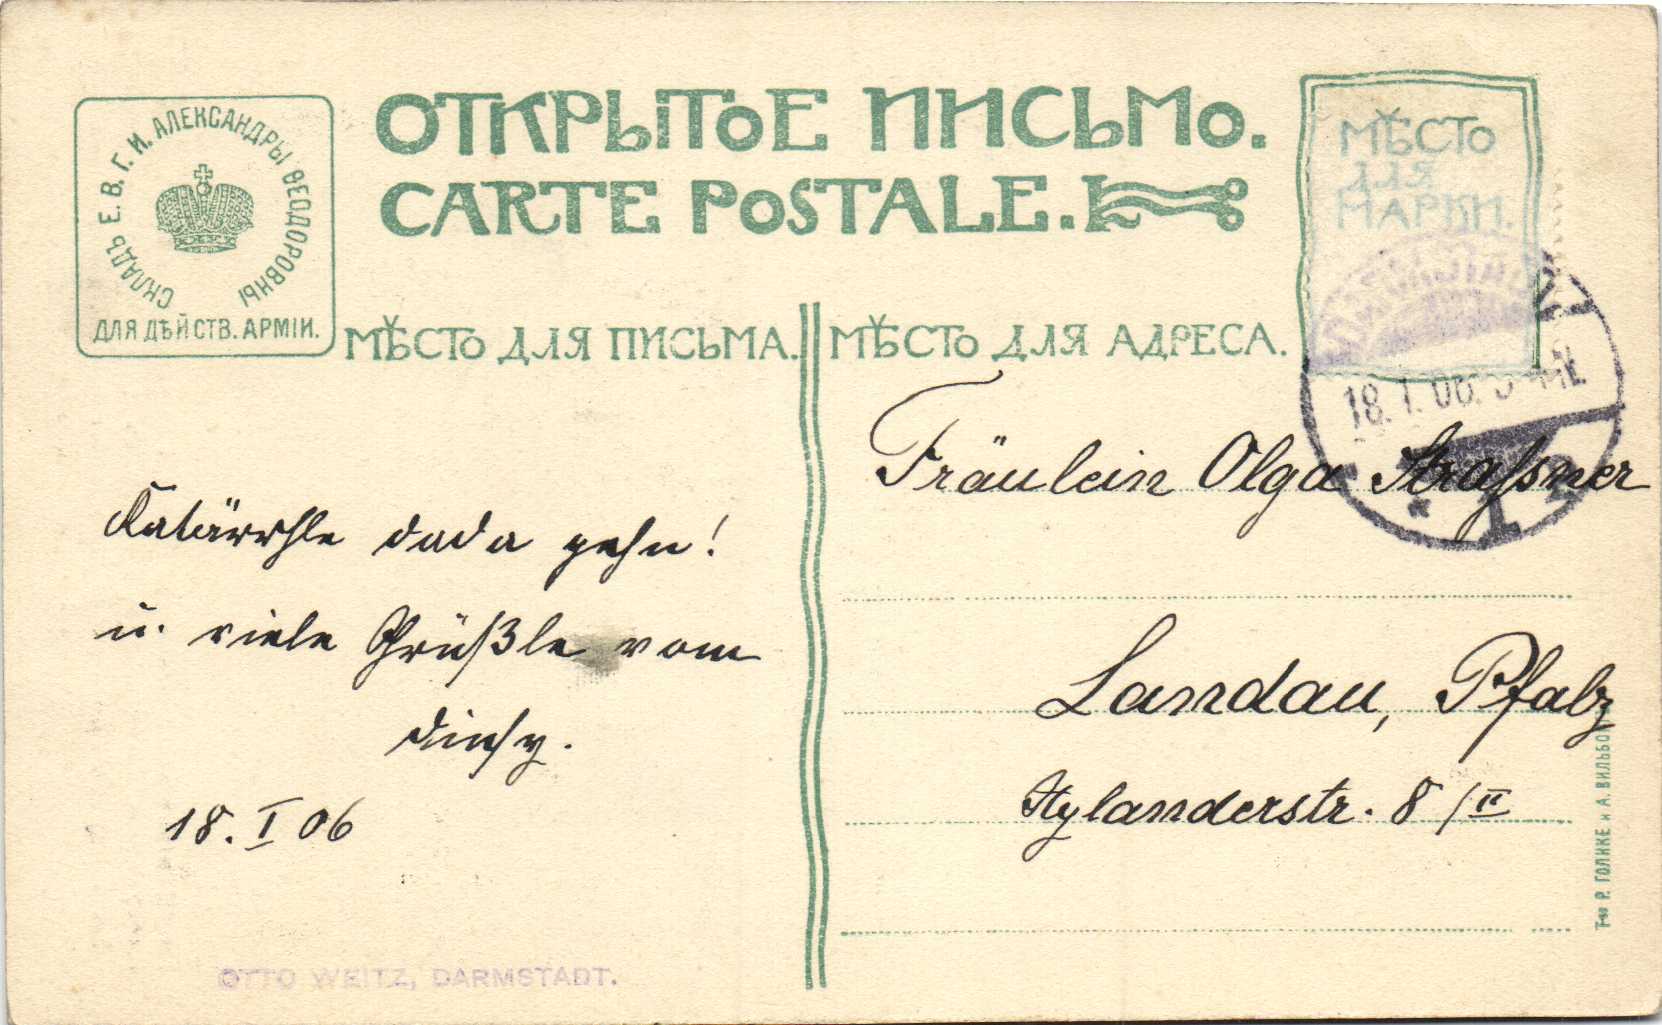 ОТКРЫТОЕ ПИСЬМО.
CARTE POSTALE.
СКЛАДЪ Е. В. Г. И. АЛЕКСАНДРЫ ѲЕОДОРОВНЫ
ДЛЯ ДѢЙСТВ. АРМІИ.
МѢСТО
ДЛЯ
МАРКИ.
МѢСТО ДЛЯ ПИСЬМА.
МѢСТО ДЛЯ АДРЕСА.
18. 1. 06.
Katärrhle dada gehn!
u. viele Grüßle vom
18. I 06
OTTO WEITZ, DARMSTADT.
Fräulein Olga Strassner
Landau, Pfalz
Hylanderstr. 8/II
Т-во Р. ГОЛИКЕ и А. ВИЛЬБО